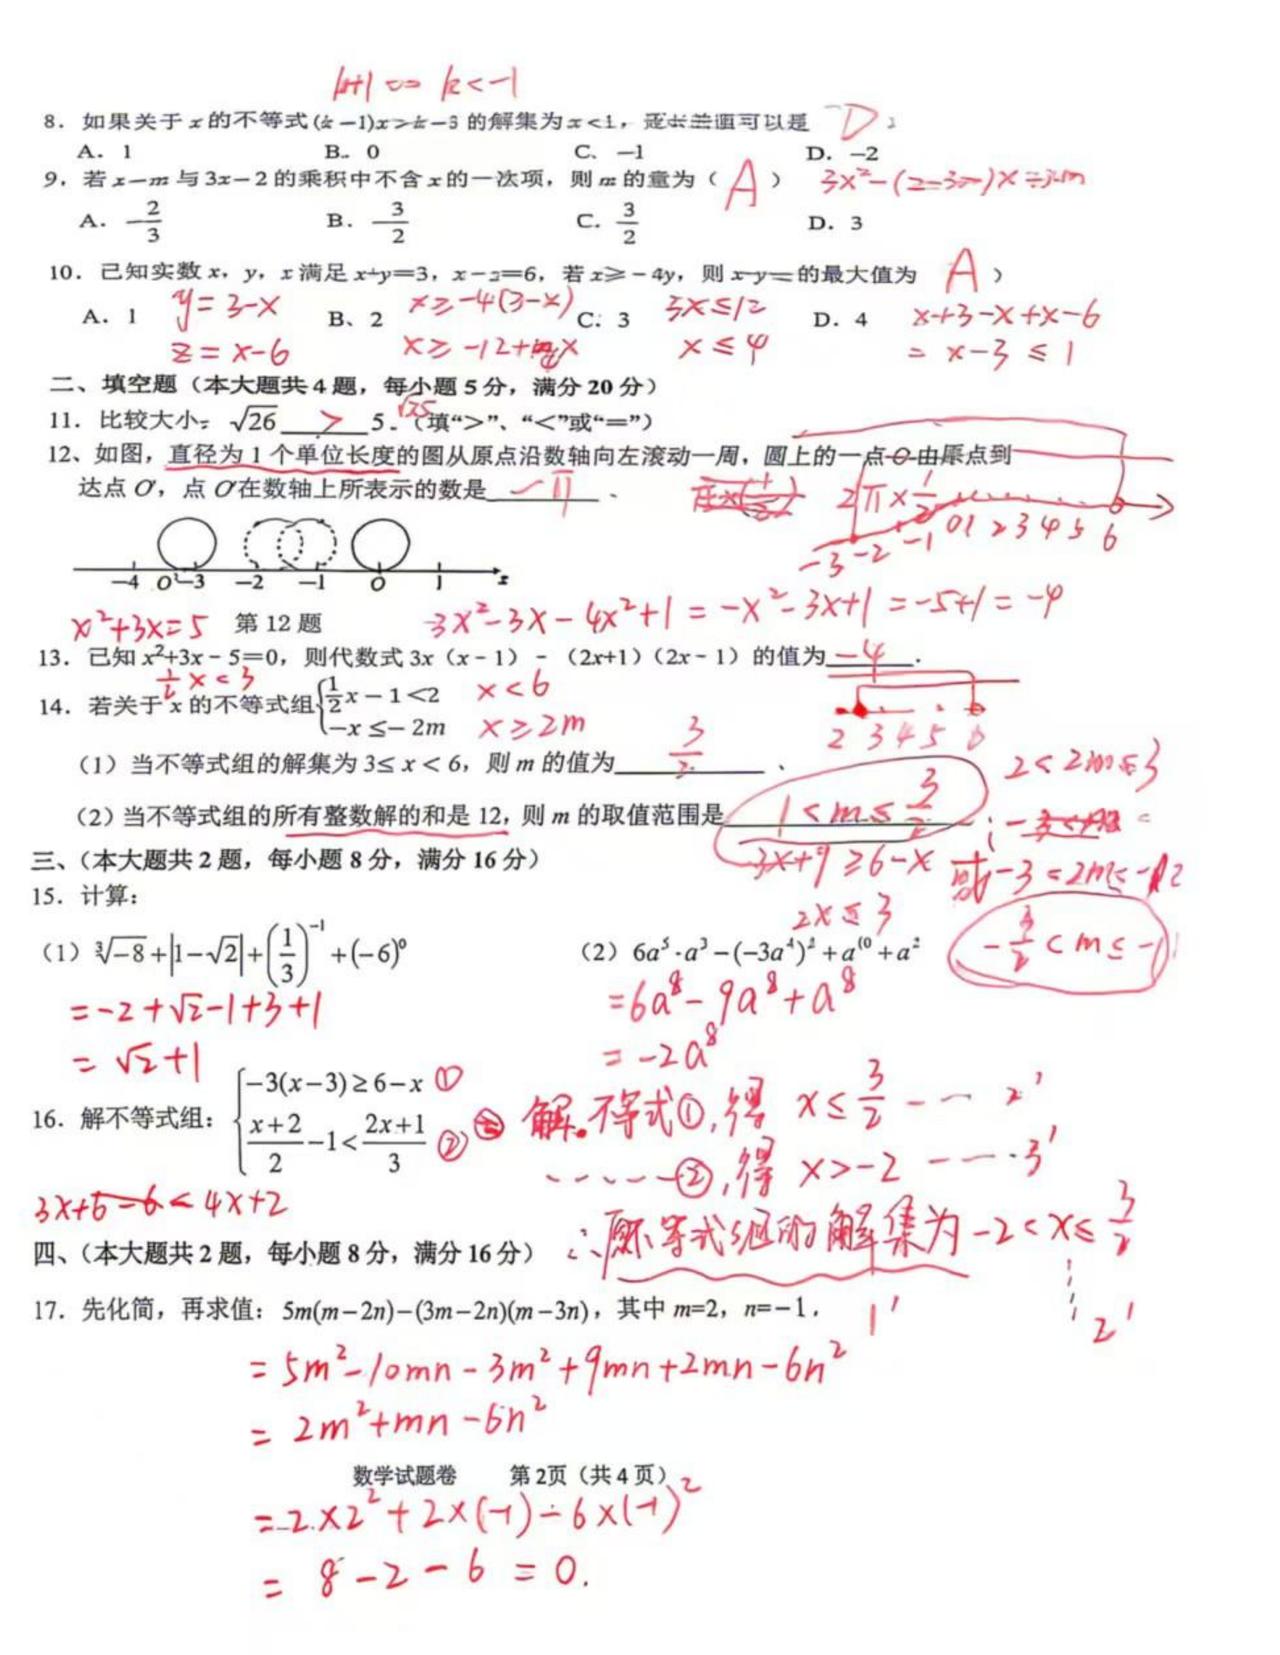 k+1<0 k<-1
8．如果关于 x 的不等式 的解集为 x<1，可以是 D
A．1 B．0 C．-1 D．-2
9，若 x-m 与 3x-2 的乘积中不含 x 的一次项，则 m 的 为（ A ） 3x²-(2-3
A．-2/3 B．-3/2 C．3/2 D．3
10．已知实数 x，y，z 满足 x+y=3，x-z=6，若 x≥-4y，则 的最大值为 A ）
A．1 B、2 C：3 D．4
y=3-x x≥-4(3-x) 3x≤12 x+3-x+x-6
z=x-6 x≥-12+ x x≤4 =x-3≤1
二、填空题（本大题共 4 题，每小题 5 分，满分 20 分）
11．比较大小：√26 > 5．（填“>”、“<”或“=”） √25
12、如图，直径为 1 个单位长度的圆从原点沿数轴向左滚动一周，圆上的一点 O 由原点到
达点 O′，点 O′在数轴上所表示的数是 -π ．
2 π×1/2
-3 -2 -1 0 1 2 3 4 5 6
-4 O′ -3 -2 -1 0 1 x
x²+3x=5 第 12 题 3x²-3x-4x²+1=-x²-3x+1=-5+1=-4
13．已知 x²+3x-5=0，则代数式 3x（x-1）-（2x+1）（2x-1）的值为 -4 ．
1/2 x<3
14．若关于 x 的不等式组{1/2 x-1<2 x<6
-x≤-2m x≥2m
2 3 4 5 6
（1）当不等式组的解集为 3≤x<6，则 m 的值为 3/2 ．
2<2m≤3
（2）当不等式组的所有整数解的和是 12，则 m 的取值范围是 1<m≤3/2 ；
三、（本大题共 2 题，每小题 8 分，满分 16 分）
-3x+9≥6-x 或-3<2m≤-2
15．计算： 2x≤3
-3/2<m≤-1
（1）∛-8+|1-√2|+(1/3)⁻¹+(-6)⁰ （2）6a⁵·a³-(-3a⁴)²+a¹⁰÷a²
=-2+√2-1+3+1 =6a⁸-9a⁸+a⁸
=√2+1 =-2a⁸
16．解不等式组：{-3(x-3)≥6-x ① 解.不等式①,得 x≤3/2 ---- 2′
(x+2)/2-1<(2x+1)/3 ② ……②,得 x>-2 ----3′
3x+6-6<4x+2
∴原不等式组的解集为-2<x≤3/2
四、（本大题共 2 题，每小题 8 分，满分 16 分）
1′ 2′
17．先化简，再求值：5m(m-2n)-(3m-2n)(m-3n)，其中 m=2，n=-1．
=5m²-10mn-3m²+9mn+2mn-6n²
=2m²+mn-6n²
数学试题卷 第 2页（共 4 页）
=2×2²+2×(-1)-6×(-1)²
=8-2-6=0.